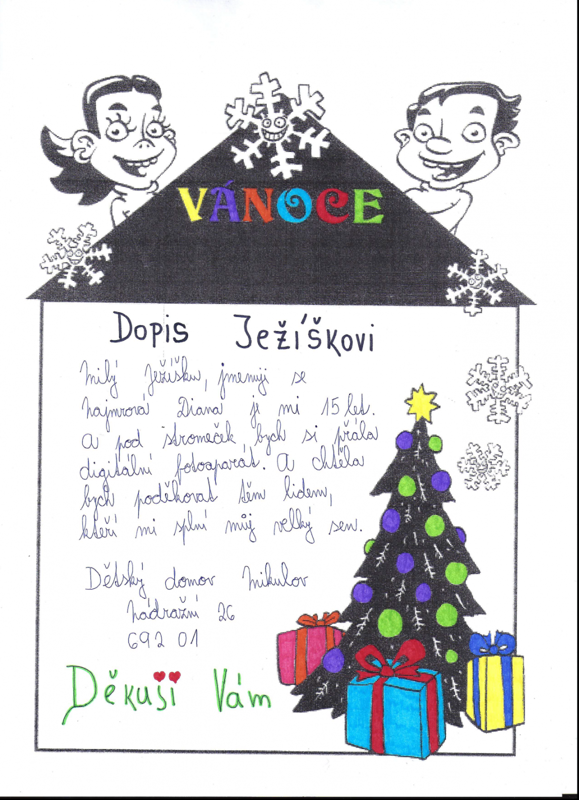 VÁNOCE
Dopis Ježíškovi
Milý Ježíšku, jmenuji se
Najmrova Diana ji mi 15 let.
A pod stromeček bych si přála
digitální fotoaparát. A chtěla
bych poděkovat těm lidem,
kteří mi splní můj velký sen.
Dětský domov Mikulov
Nádražní 26
692 01
Děkuji Vám